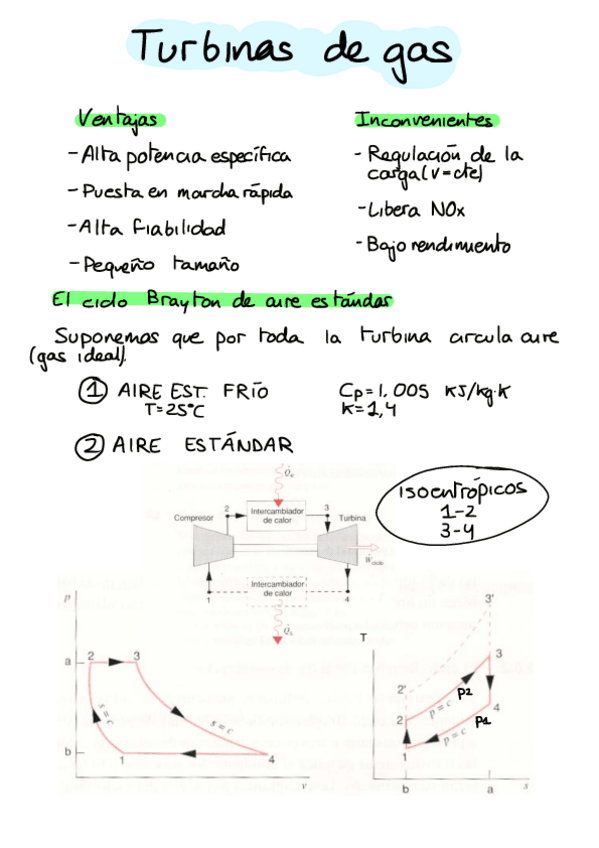 Turbinas de gas
Ventajas
- Alta potencia específica
- Puesta en marcha rápida
- Alta fiabilidad
- Pequeño tamaño
Inconvenientes
- Regulación de la
carga (v=cte)
- Libera NOx
- Bajo rendimiento
El ciclo Brayton de aire estándar
Suponemos que por toda la turbina circula aire
(gas ideal).
1 AIRE EST. FRÍO
T=25°C
Cp=1,005 KJ/kg·K
K=1,4
2 AIRE ESTÁNDAR
Isoentrópicos
1-2
3-4
Compresor
2
Intercambiador
de calor
3
Turbina
Ẇciclo
1
Intercambiador
de calor
4
Q̇s
p
a
2
3
s = c
s = c
b
1
4
v
T
3'
3
2'
p = c
P2
4
2
p = c
P1
1
b
a
s